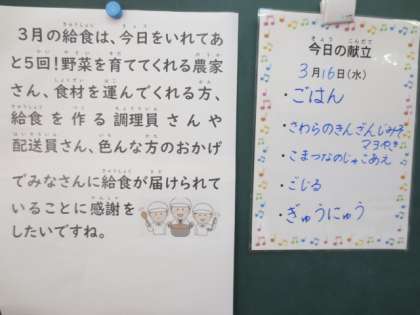 3月の給食は、今日をいれてあ
と5回！野菜を育ててくれる農家
さん、食材を運んでくれる方、
給食を作る調理員さんや
配送員さん、色んな方のおかげ
でみなさんに給食が届けられて
いることに感謝を
したいですね。
今日の献立
3月16日(水)
・ごはん
・さわらのきんざんじみそ
マヨやき
・こまつなのじゃこあえ
・ごじる
・ぎゅうにゅう